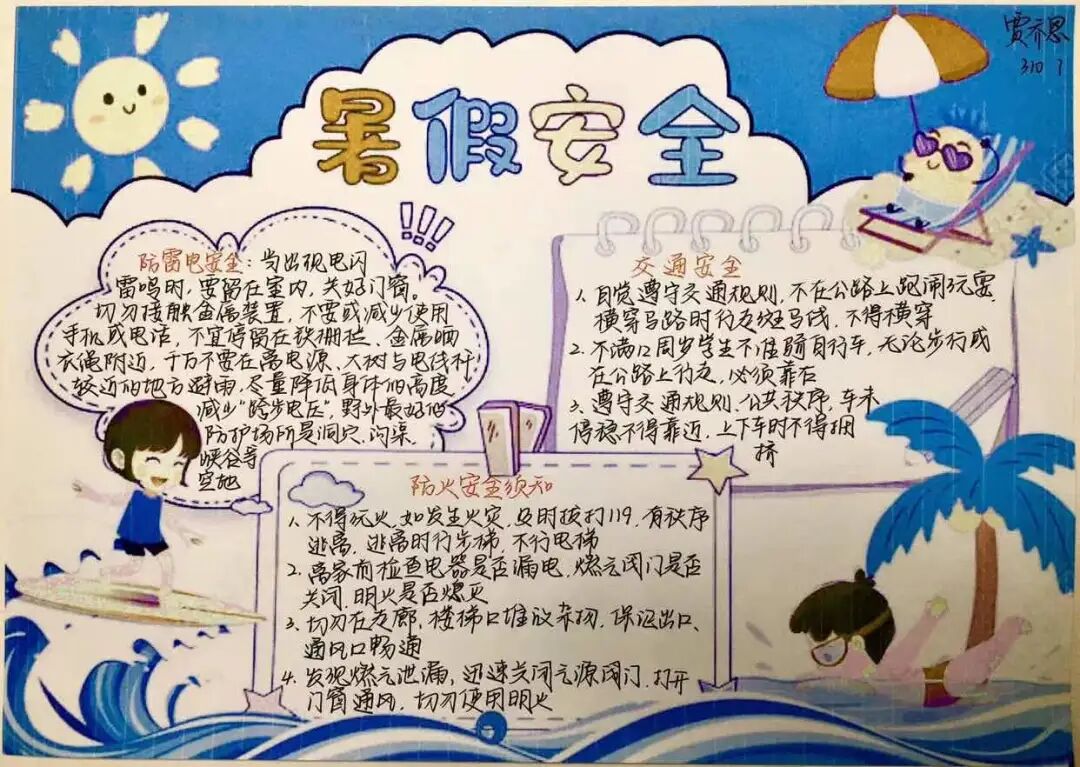 贾乔思
310 1
暑假安全
!!!
防雷电安全：当出现电闪
雷鸣时，要留在室内，关好门窗。
切勿接触金属装置，不要或减少使用
手机或电话，不宜停留在铁栅栏、金属晒
衣绳附近，千万不要在离电源、大树与电线杆
较近的地方避雨，尽量降低身体的高度
减少"跨步电压"，野外最好的
防护场所是洞穴、沟渠、
峡谷等
空地
交通安全
1、自觉遵守交通规则，不在公路上跑闹玩耍，
横穿马路时行走斑马线，不得横穿
2、不满12周岁学生不准骑自行车，无论步行或
在公路上行走，必须靠右
3、遵守交通规则、公共秩序，车未
停稳不得靠近，上下车时不得拥
挤
防火安全须知
1、不得玩火，如发生火灾，及时拨打119，有秩序
逃离，逃离时行步梯，不行电梯
2、离家前检查电器是否漏电，燃气阀门是否
关闭，明火是否熄灭
3、切勿在走廊、楼梯口堆放杂物，保证出口、
通风口畅通
4、发现燃气泄漏，迅速关闭气源阀门，打开
门窗通风，切勿使用明火